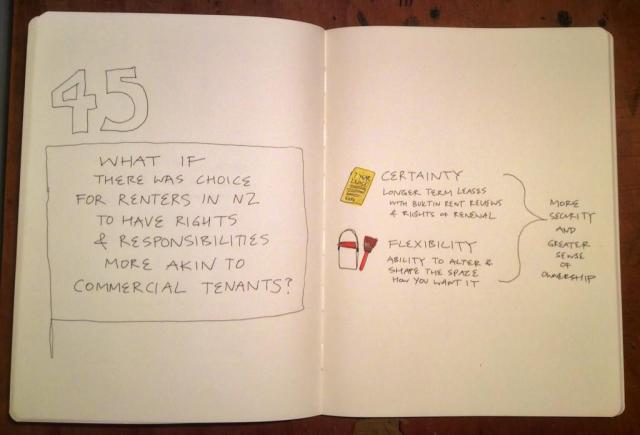 45
WHAT IF
THERE WAS CHOICE
FOR RENTERS IN NZ
TO HAVE RIGHTS
& RESPONSIBILITIES
MORE AKIN TO
COMMERCIAL TENANTS?
7 YEAR
LEASE
CERTAINTY
LONGER TERM LEASES
WITH BUILTIN RENT REVIEWS
& RIGHTS OF RENEWAL
FLEXIBILITY
ABILITY TO ALTER &
SHAPE THE SPACE
HOW YOU WANT IT
MORE
SECURITY
AND
GREATER
SENSE
OF
OWNERSHIP